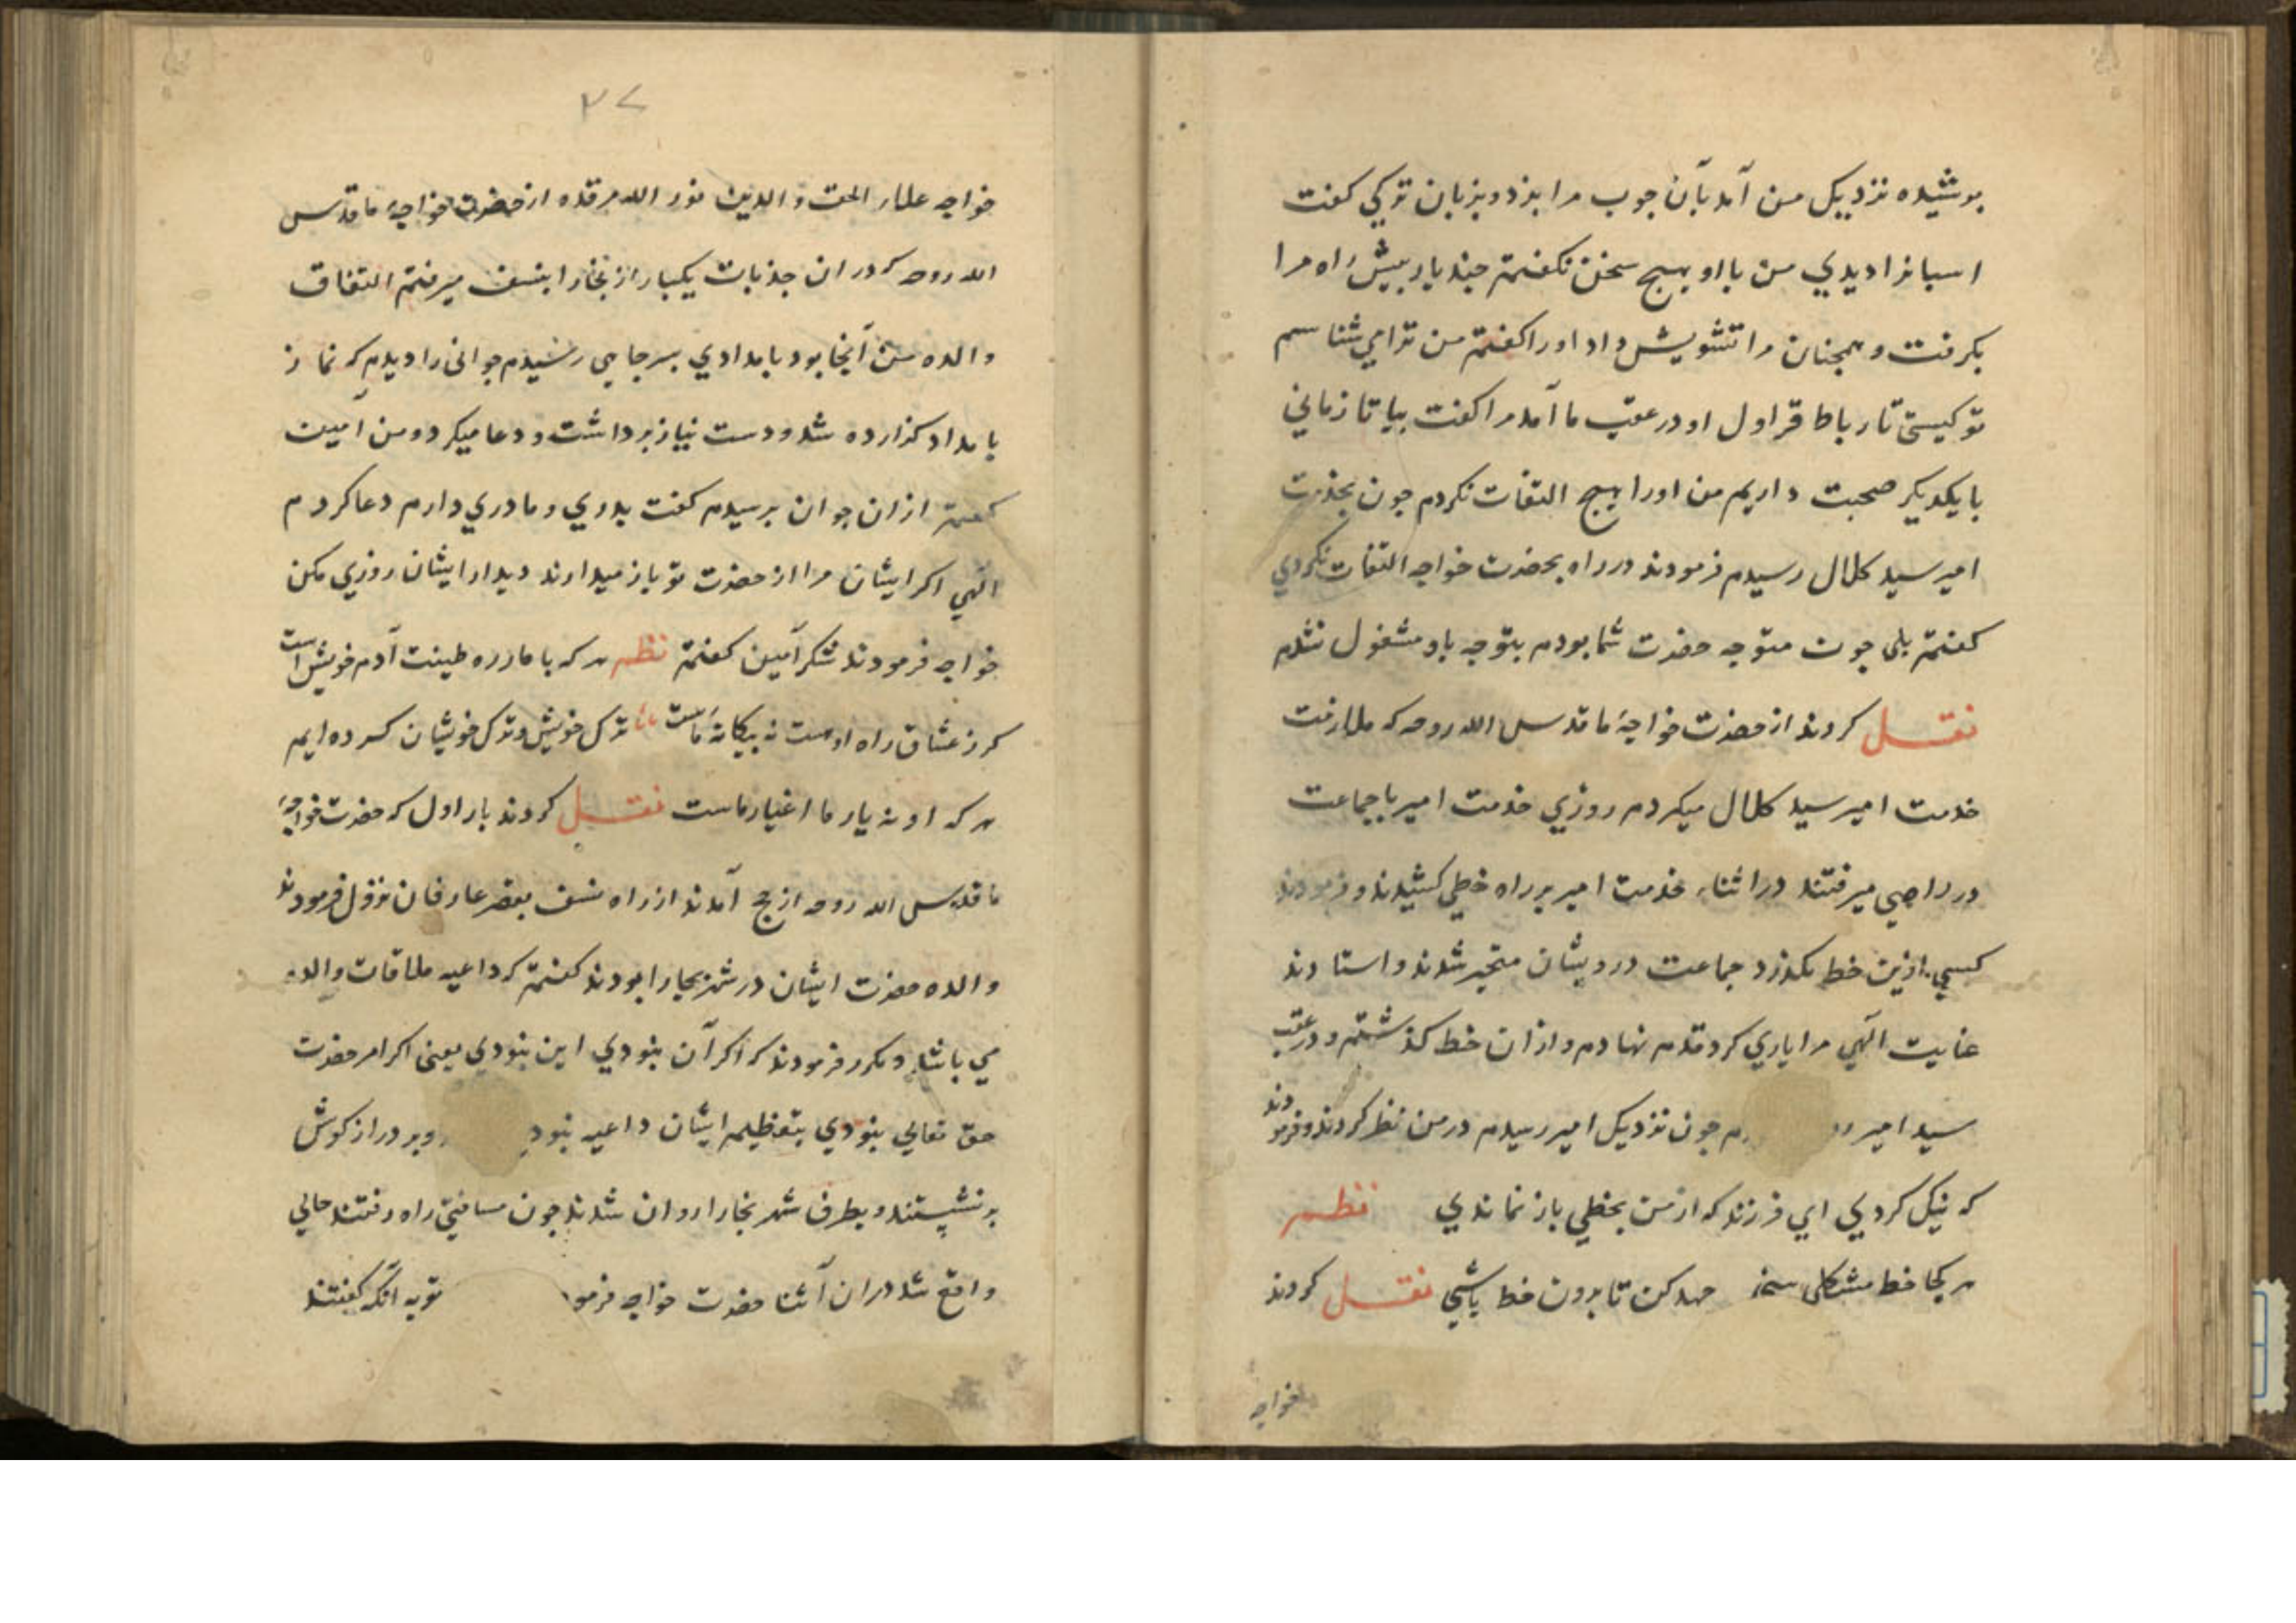 پوشیده نزدیک من آمد بآن جوب مرا بزد و بزبان ترکی کفت
اسبانرا دیدی من با او هیچ سخن نکفتم چند بار پیش راه مرا
بکرفت و همچنان مرا تشویش داد او را کفتم من ترا می شناسم
تو کیستی تا رباط قراول او در عقب ما آمد مرا کفت بیا تا زمانی
با یکدیکر صحبت داریم من او را هیچ التفات نکردم چون بخدمت
امیر سید کلال رسیدم فرمودند در راه بحضرت خواجه التفات نکردی
کفتم بلی چون متوجه حضرت شما بودم بتوجه باو مشغول نشدم
نقل کردند از حضرت خواجهٔ ما قدس الله روحه که ملازمت
خدمت امیر سید کلال میکردم روزی خدمت امیر با جماعت
در راهی میرفتند در اثناء خدمت امیر بر راه خطی کشیدند و فرمودند
کسی ازین خط نکذرد جماعت درویشان متحیر شدند و استادند
عنایت الهی مرا یاری کرد قدم نهادم و از ان خط کذشتم و در عقب
سید امیر چون نزدیک امیر رسیدم در من نظر کردند و فرمودند
که نیک کردی ای فرزند که از من بخطی باز نماندی نظم
هر کجا خط مشکلی جهد کن تا برون خط باشی نقل کردند
خواجه
۲۷
خواجه علاء الحق والدین نور الله مرقده از حضرت خواجهٔ ما قدس
الله روحه که در ان جذبات یکبار از بخارا بنسف میرفتم اتفاق
والده من آنجا بود بامدادی بسر جاهی رسیدم جوانی را دیدم که نماز
بامداد کزارده شد و دست نیاز برداشت و دعا میکرد و من آمین
کفتم از ان جوان پرسیدم کفت پدری و مادری دارم دعا کردم
الهی اکر ایشان مرا از حضرت تو باز میدارند دیدار ایشان روزی مکن
خواجه فرمودند شکر آمین کفتم نظم هر که با ما زره طینت آدم خویش است
کر ز عشاق راه اوست نه بیکانهٔ ماست ترک خویش و ترک خویشان کرده ایم
هر که او نه یار ما اغیار ماست نقل کردند بار اول که حضرت خواجهٔ
ما قدس الله روحه از حج آمدند از راه نسف بقصر عارفان نزول فرمودند
والده حضرت ایشان در شهر بخارا بودند کفتم که داعیه ملاقات والده
می باشد و مکرر فرمودند که اکر آن نبودی این نبودی یعنی اکر امر حضرت
حق تعالی نبودی بتعظیم ایشان داعیه نبود و بر دراز کوش
بر نشستند و بطرف شهر بخارا روان شدند چون مسافتی راه رفتند حالی
واقع شد در ان اثنا حضرت خواجه فرمود توبه آنکه کفتند